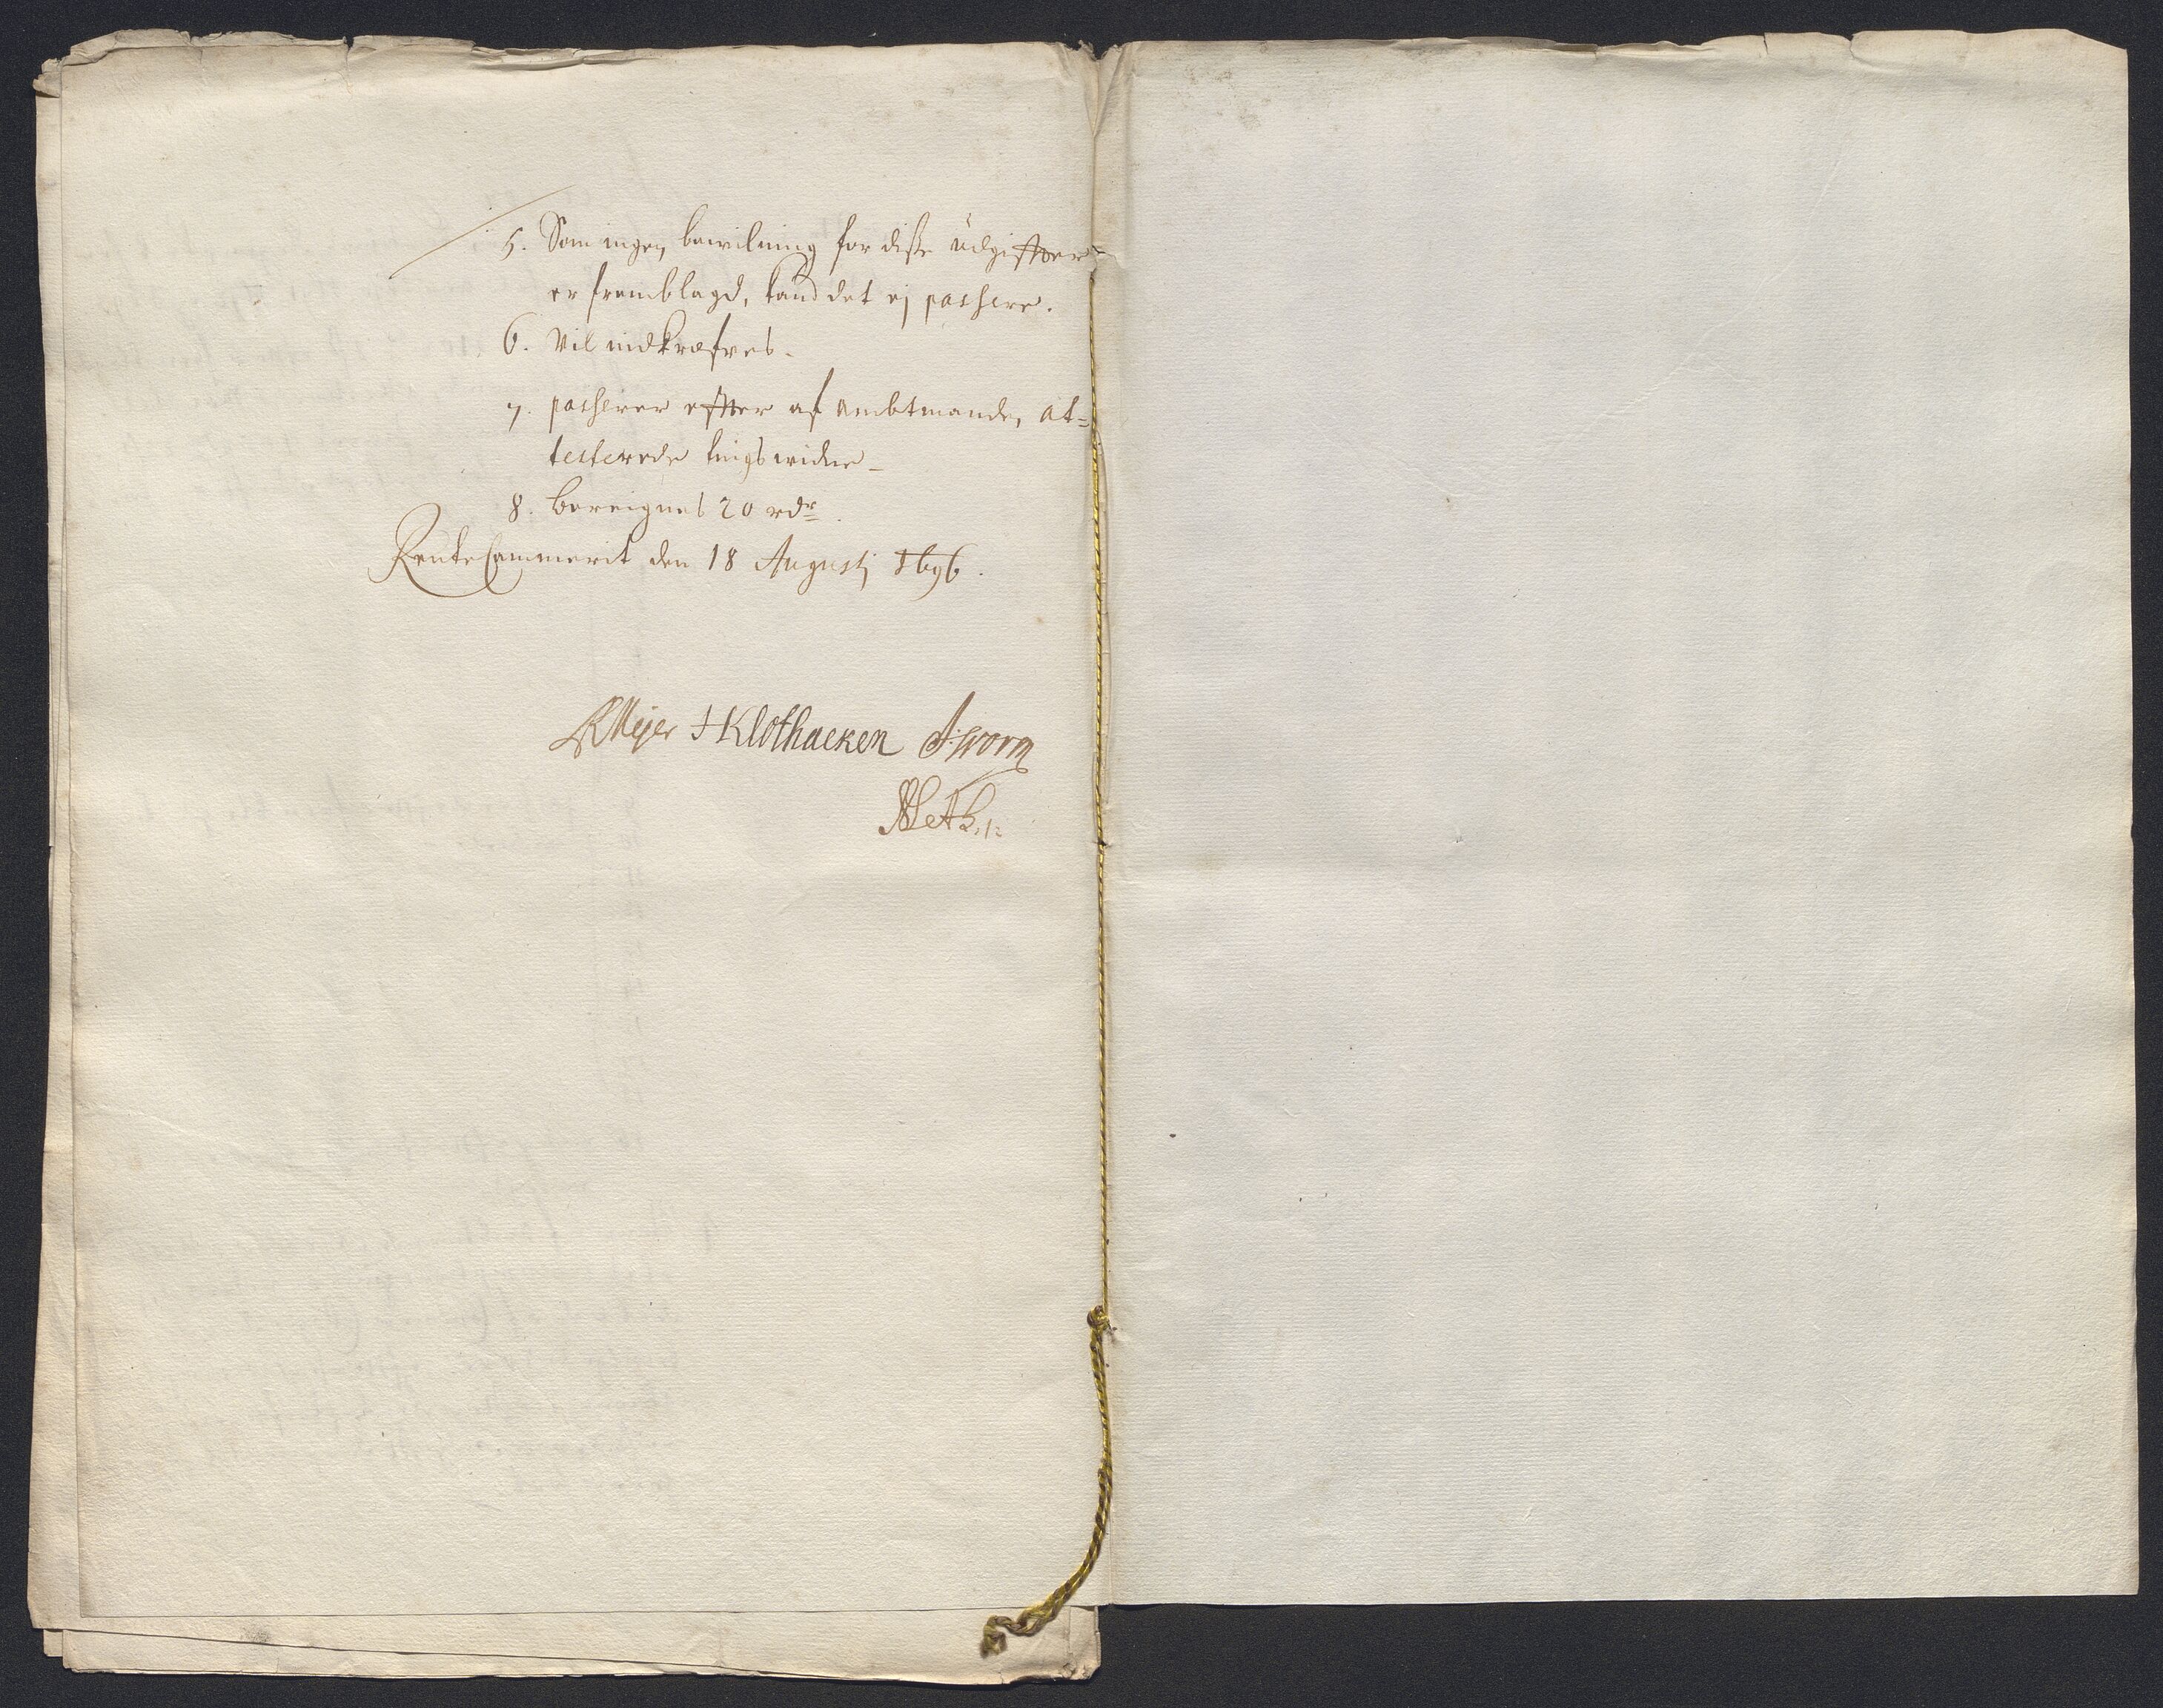 5. Som ingen bewilning for disse udgiffter
er fremblagd, kand det ej passere.
6. Vil indkræfves.
7. passerer effter af Ambtmanden at-
testerede tingswidne
8. Bereignes 20 rdr
RenteCammerit den 18 Augustj 1696.
Meyer Klothacken Worm